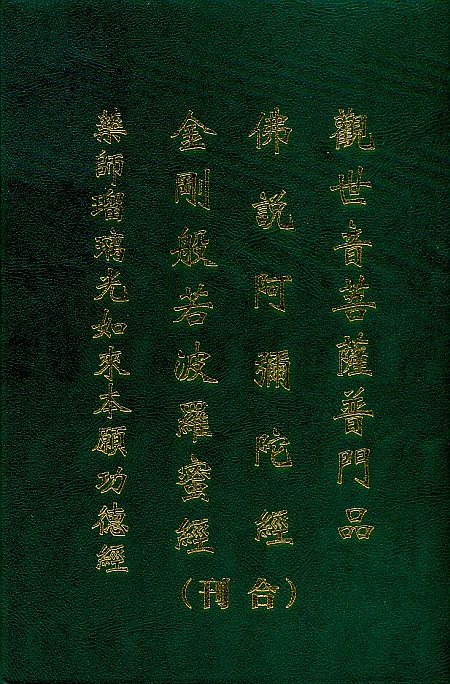 觀世音菩薩普門品
佛說阿彌陀經
金剛般若波羅蜜經
藥師瑠璃光如來本願功德經
(合刊)